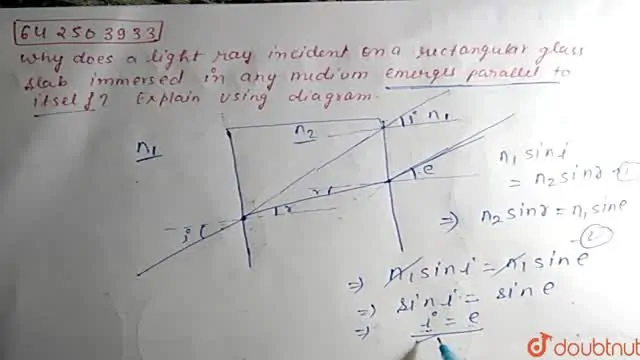 642503933
Why does a light ray incident on a rectangular glass
slab immersed in any medium emerges parallel to
itself? Explain using diagram.
n₁
n₂
i n₁
n₁ sin i
= n₂ sin r - ①
r e
i r
⇒ n₂ sin r = n₁ sin e
- ②
⇒ n₁ sin i = n₁ sin e
⇒ sin i = sin e
⇒ i = e
doubtnut